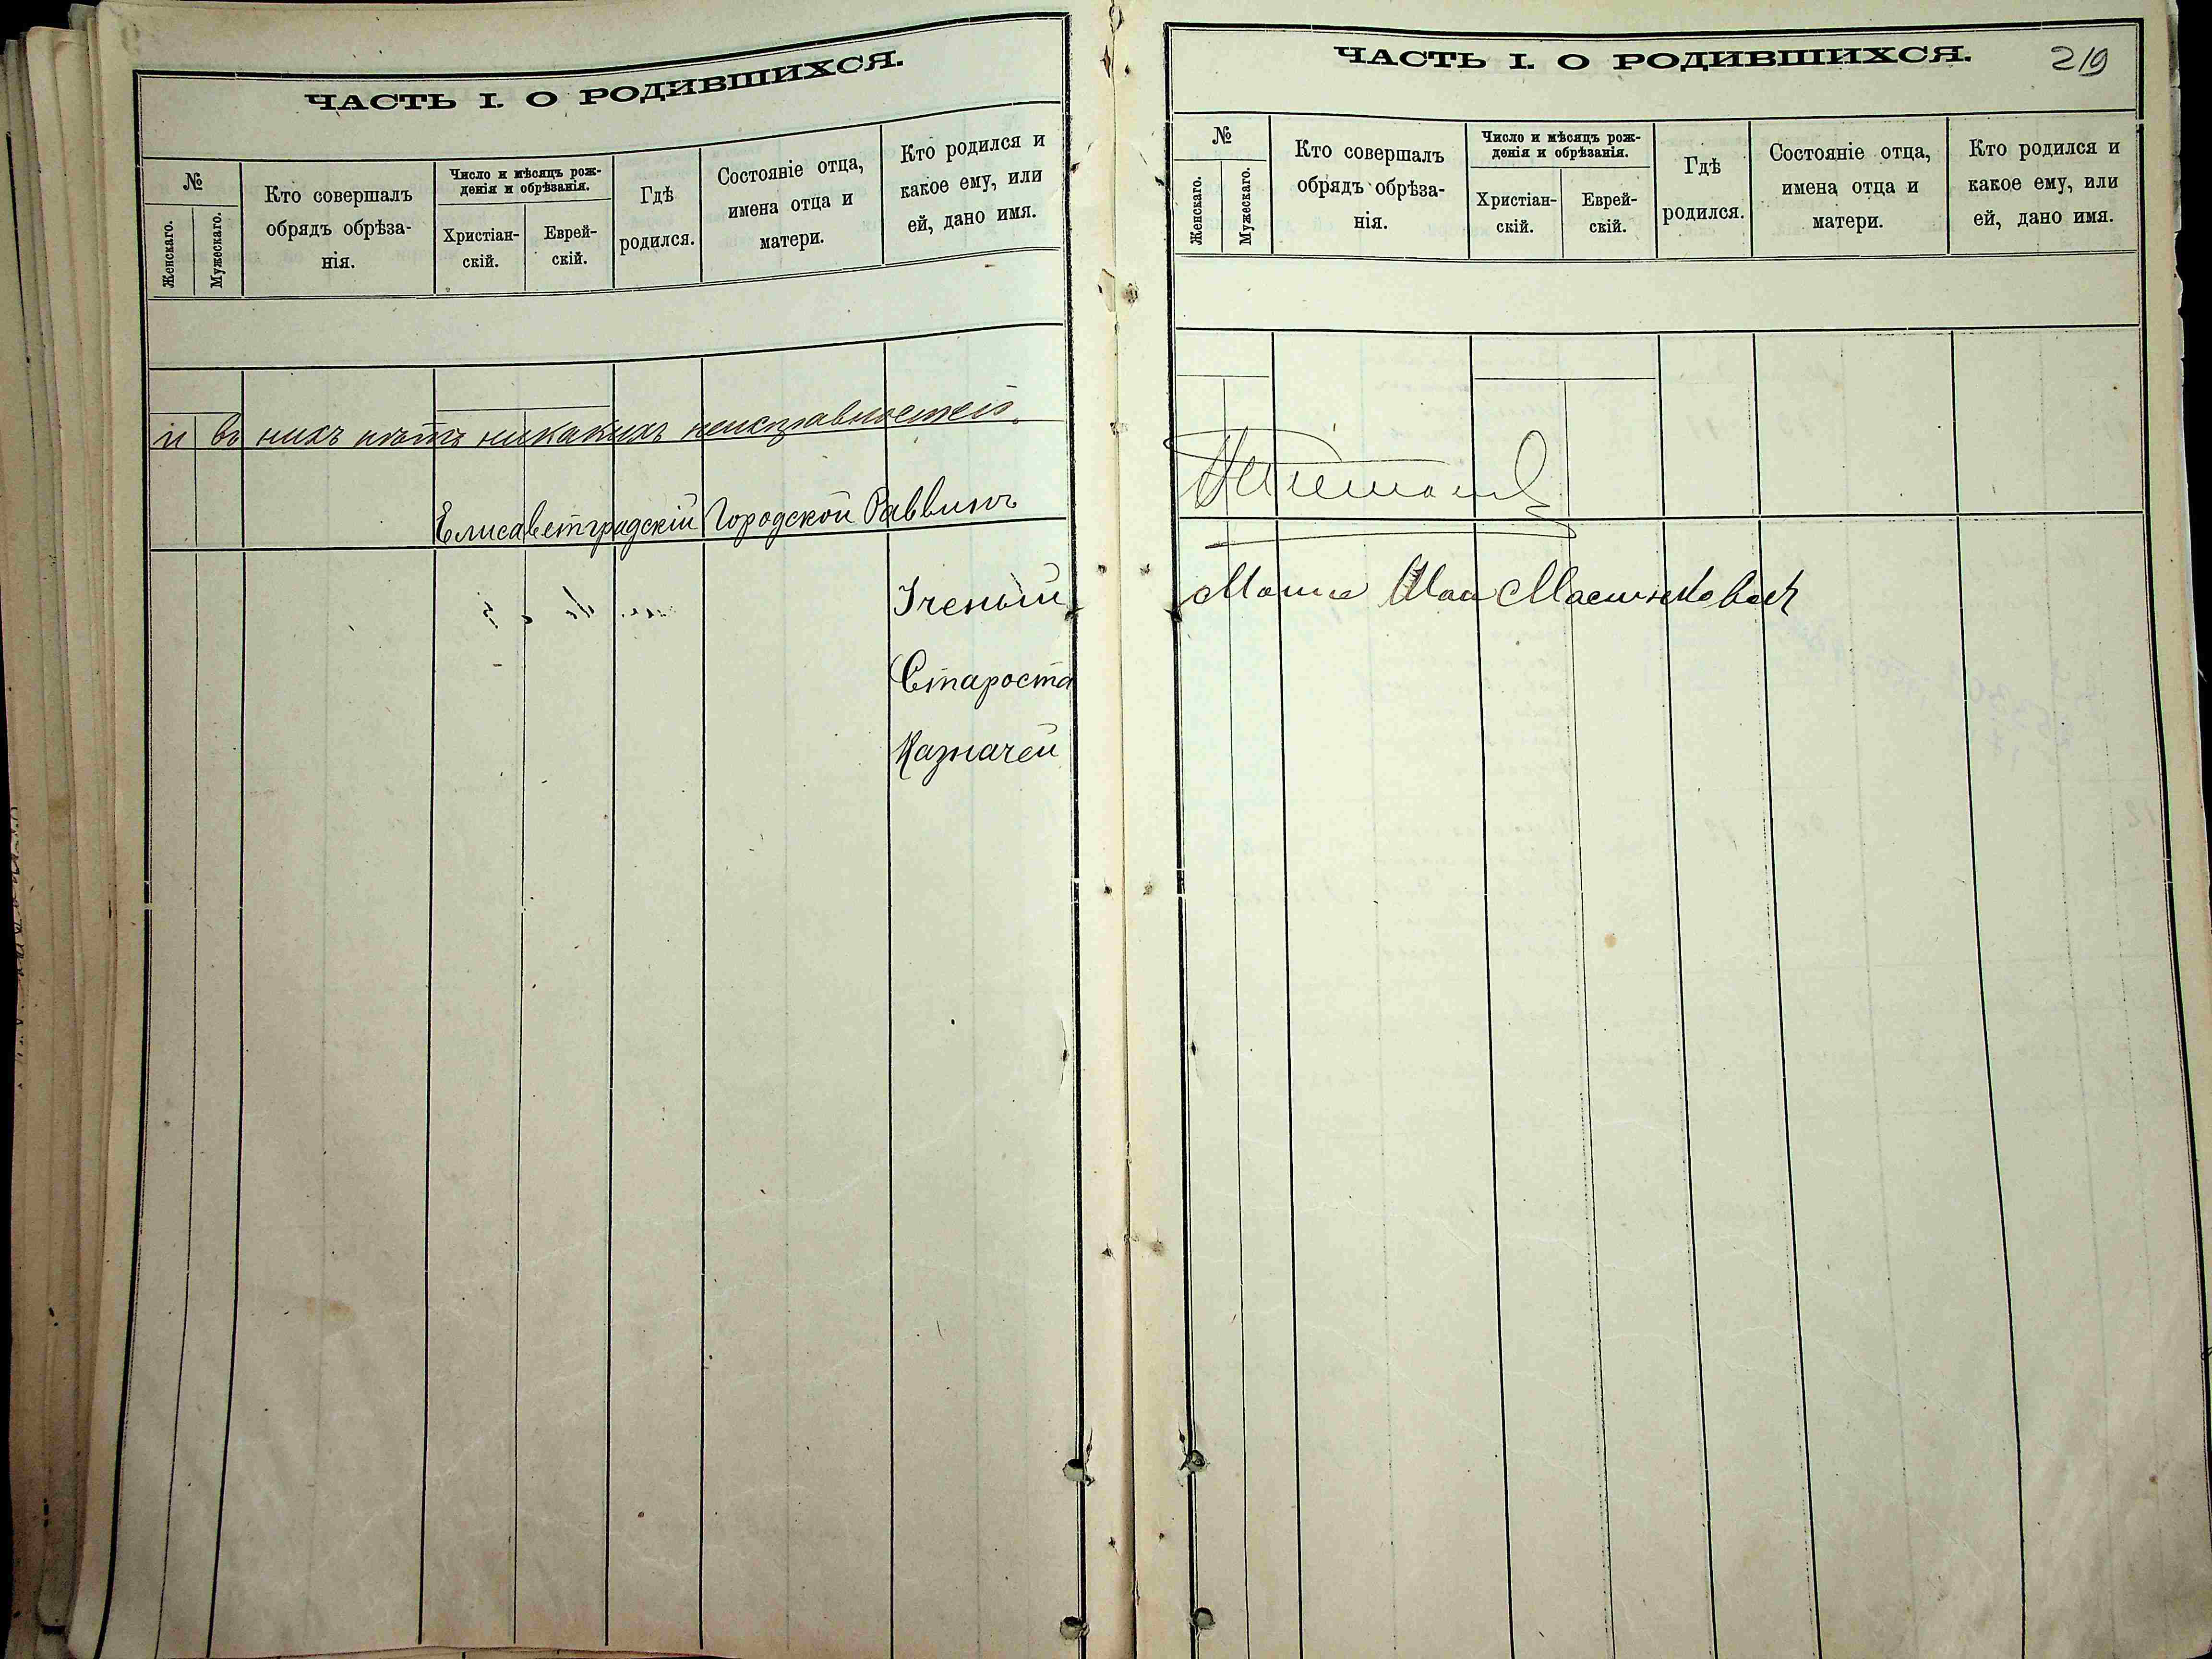 ЧАСТЬ I. О РОДИВШИХСЯ.
№
Женскаго.
Мужескаго.
Кто совершалъ
обрядъ обрѣза-
нія.
Число и мѣсяцъ рож-
денія и обрѣзанія.
Христіан-
скій.
Еврей-
скій.
Гдѣ
родился.
Состояніе отца,
имена отца и
матери.
Кто родился и
какое ему, или
ей, дано имя.
и въ нихъ нѣтъ никакихъ неисправностей.
Елисаветградскій Городской Раввинъ
Ученый
Староста
Казначей
ЧАСТЬ I. О РОДИВШИХСЯ.
219
№
Женскаго.
Мужескаго.
Кто совершалъ
обрядъ обрѣза-
нія.
Число и мѣсяцъ рож-
денія и обрѣзанія.
Христіан-
скій.
Еврей-
скій.
Гдѣ
родился.
Состояніе отца,
имена отца и
матери.
Кто родился и
какое ему, или
ей, дано имя.